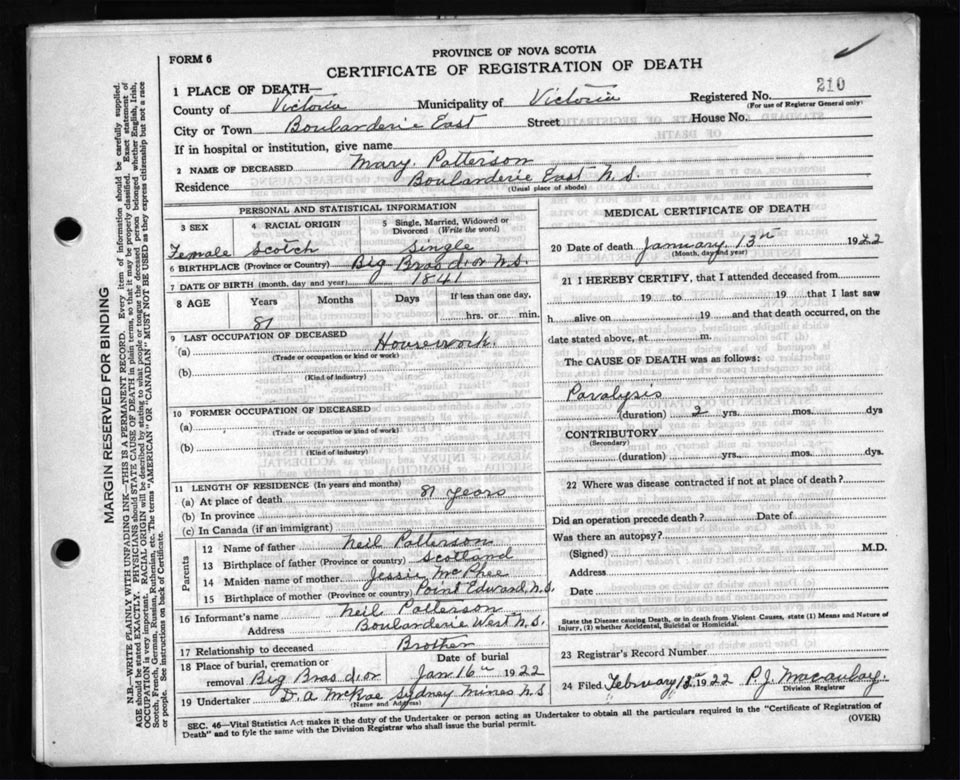 PROVINCE OF NOVA SCOTIA
FORM 6
CERTIFICATE OF REGISTRATION OF DEATH
1 PLACE OF DEATH—
County of Victoria Municipality of Victoria Registered No. 210
(For use of Registrar General only)
City or Town Boularderie East Street House No.
If in hospital or institution, give name
2 NAME OF DECEASED Mary. Patterson
Residence Boularderie East N.S.
(Usual place of abode)
PERSONAL AND STATISTICAL INFORMATION
3 SEX 4 RACIAL ORIGIN 5 Single, Married, Widowed or Divorced (Write the word)
Female Scotch Single
6 BIRTHPLACE (Province or Country) Big Bras d'or N.S.
7 DATE OF BIRTH (month, day and year) 1841
8 AGE Years Months Days If less than one day,
81 hrs. or min.
9 LAST OCCUPATION OF DECEASED
(a) Housework.
(Trade or occupation or kind or work)
(b)
(Kind of industry)
10 FORMER OCCUPATION OF DECEASED
(a)
(Trade or occupation or kind of work)
(b)
(Kind of Industry)
11 LENGTH OF RESIDENCE (In years and months)
(a) At place of death 81 years
(b) In province
(c) In Canada (if an immigrant)
Parents
12 Name of father Neil Patterson
13 Birthplace of father (Province or country) Scotland
14 Maiden name of mother Jessie McPhee
15 Birthplace of mother (Province or country) Point Edward, N.S.
16 Informant's name Neil Patterson
Address Boularderie West N.S.
17 Relationship to deceased Brother
18 Place of burial, cremation or removal Big Bras d'or Date of burial Jan 16th 1922
19 Undertaker D. A McRae Sydney Mines N S
(Name and Address)
MEDICAL CERTIFICATE OF DEATH
20 Date of death January 13th 1922
(Month, day and year)
21 I HEREBY CERTIFY, that I attended deceased from
19 to 19 that I last saw
h alive on 19 and that death occurred, on the
date stated above, at m.
The CAUSE OF DEATH was as follows:
Paralysis
(duration) 2 yrs. mos. dys
CONTRIBUTORY
(Secondary)
(duration) yrs. mos. dys.
22 Where was disease contracted if not at place of death?
Did an operation precede death? Date of
Was there an autopsy?
(Signed) M.D.
Address
Date
State the Disease causing Death, or in death from Violent Causes, state (1) Means and Nature of
Injury, (2) whether Accidental, Suicidal or Homicidal.
23 Registrar's Record Number
24 Filed February 13th 1922 P.J. Macaulay.
Division Registrar
SEC. 46—Vital Statistics Act makes it the duty of the Undertaker or person acting as Undertaker to obtain all the particulars required in the "Certificate of Registration of
Death" and to fyle the same with the Division Registrar who shall issue the burial permit. (OVER)
MARGIN RESERVED FOR BINDING
N.B.—WRITE PLAINLY WITH UNFADING INK—THIS IS A PERMANENT RECORD. Every item of information should be carefully supplied.
AGE should be stated EXACTLY. PHYSICIANS should STATE CAUSE OF DEATH in plain terms, so that it may be properly classified. Exact statement of
OCCUPATION is very important. RACIAL ORIGIN will be described by stating to what people or tongue the deceased person belonged whether English, Irish,
Scotch, French, German, Russian, Ruthenian, etc. The terms "AMERICAN" OR "CANADIAN" MUST NOT BE USED as they express citizenship but not a race
or people. See instructions on back of Certificate.